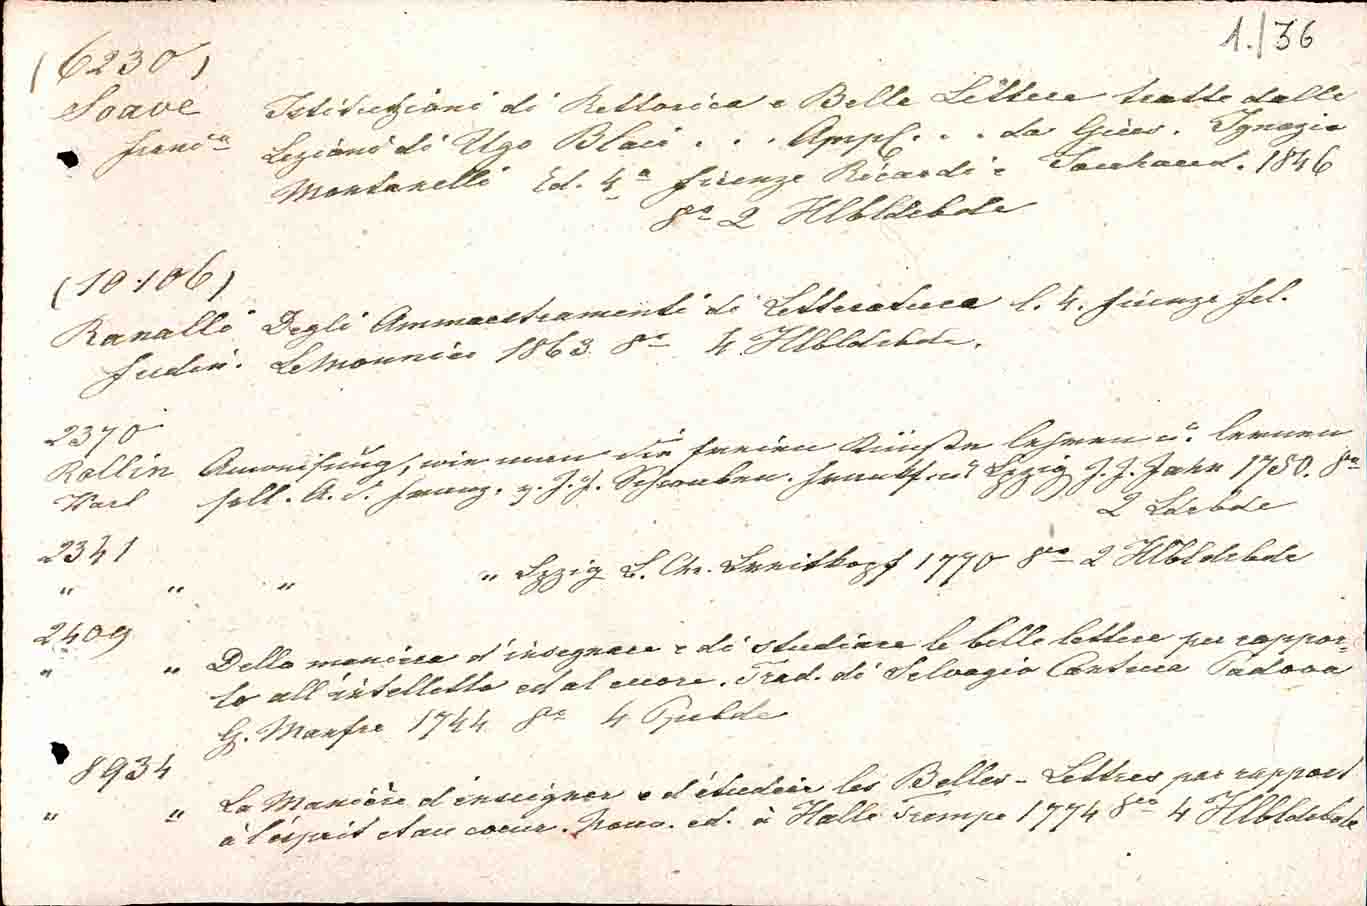 1./36
(6230)
Soave Istituzioni di Rettorica e Belle Lettere tratte dalle
Franc.º Lezioni di Ugo Blair . . . Ampl. . . da Gius. Ignazio
Montanelli Ed. 4ª Firenze Ricordi e 1846
8º 2 Hlbldrbde
(10.106)
Ranalli Degli Ammaestramenti di Letteratura l. 4. Firenze Fel.
Ferdin. LeMonnier 1863 8º 4 Hlbldrbde.
2370
Rollin Anweisung, wie man die freien Künste lehren u. lernen
Karl soll. A. d. Franz. v. J. J. Schwaben. Frankf. u. Lpzig J. J. Jahn 1750. 8vo
2 Ldrbde
2341
" " " " Lpzig B. Chr. Breitkopf 1770 8vo 2 Hlbldrbde
2409
" " Della maniera d'insegnare e di studiare le belle lettere per rappor-
to all'intelletto ed al cuore. Trad. di Selvagio Cantura Padova
G. Manfre 1744 8vo 4 Ppbde
8934
" " La Manière d'enseigner e d'étudier les Belles-Lettres par rapport
à l'esprit et au coeur. Nouv. ed. à Halle Trampe 1774 8vo 4 Hlbldrbde